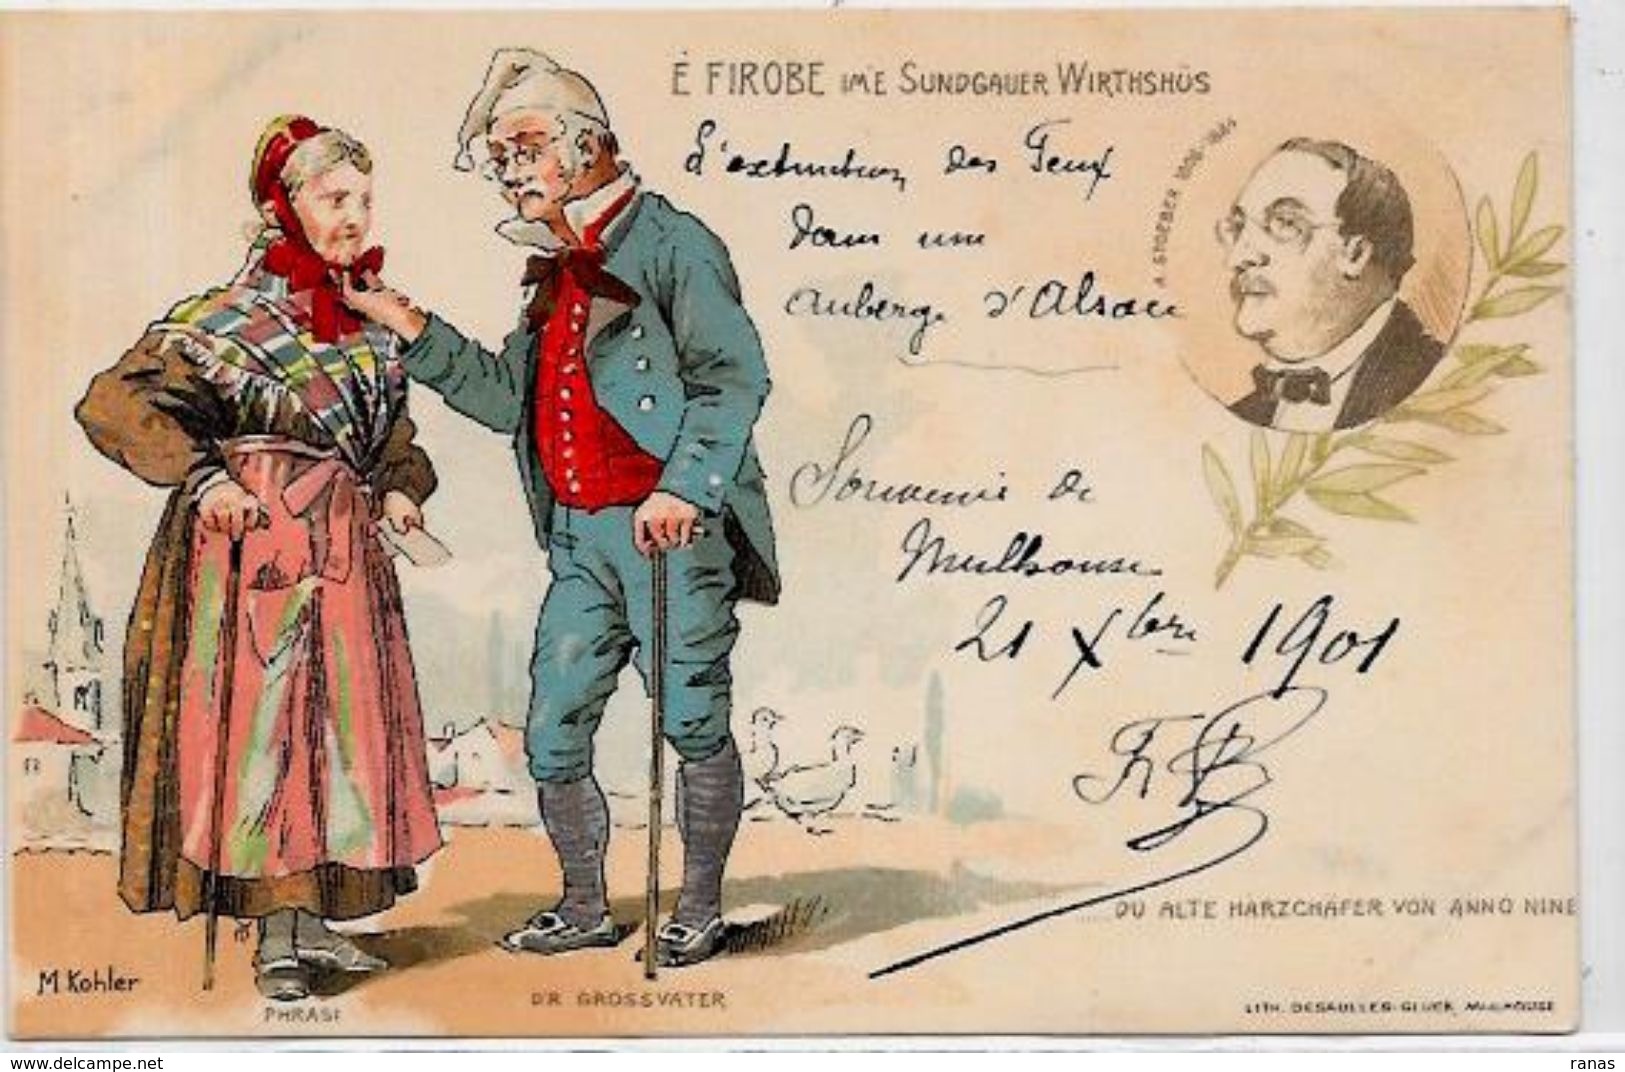 É FIROBE IM'E SUNDGAUER WIRTHSHÜS
A. STOEBER 1808-1884
L'extinction des Feux
dans une
auberge d'Alsace
Souvenir de
Mulhouse
21 Xbre 1901
DU ALTE HARZCHÄFER VON ANNO NINE
M. Kohler
PHRASI
D'R GROSSVATER
LITH. DESAULLES-GLUCK, MULHOUSE
ranas